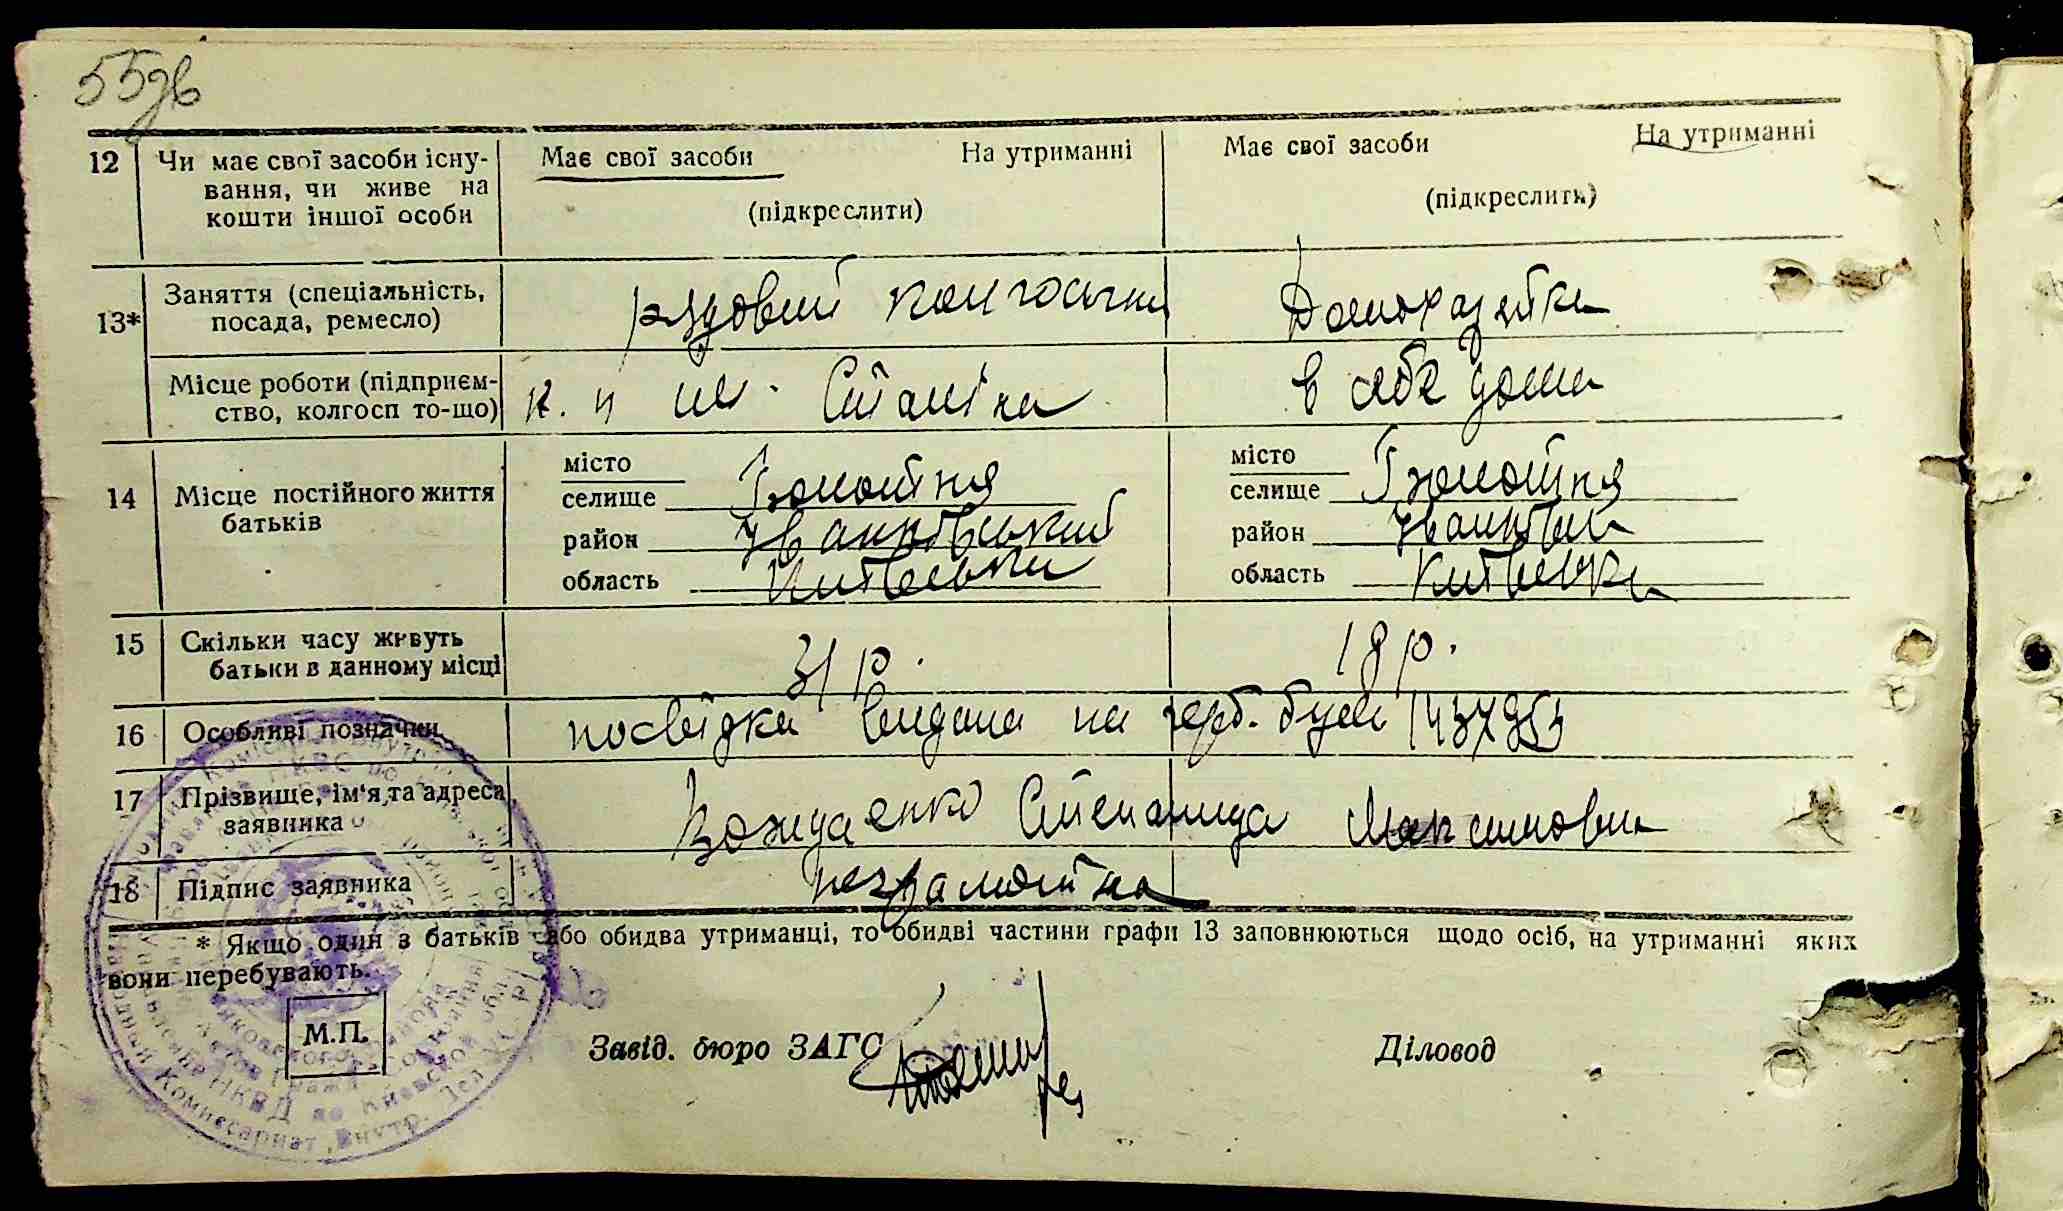 55зв
12 Чи має свої засоби існу- Має свої засоби На утриманні Має свої засоби На утриманні
вання, чи живе на
кошти іншої особи (підкреслити) (підкреслить)
13* Заняття (спеціальність, рядовий колгоспник Домохазяйка
посада, ремесло)
Місце роботи (підприєм- к. п ім. Сталіна в себе дома
ство, колгосп то-що)
14 Місце постійного життя місто місто
батьків селище селище
район Іванківський район
область Київська область Київська
15 Скільки часу живуть 31 р. 18 р.
батьки в данному місці
16 Особливі позначки посвідка видана на герб. бум
17 Прізвище, ім'я та адреса Степанида Максимовна
заявника
18 Підпис заявника неграмотна
* Якщо один з батьків або обидва утриманці, то обидві частини графи 13 заповнюються щодо осіб, на утриманні яких
вони перебувають.
М.П.
Завід. бюро ЗАГС Діловод